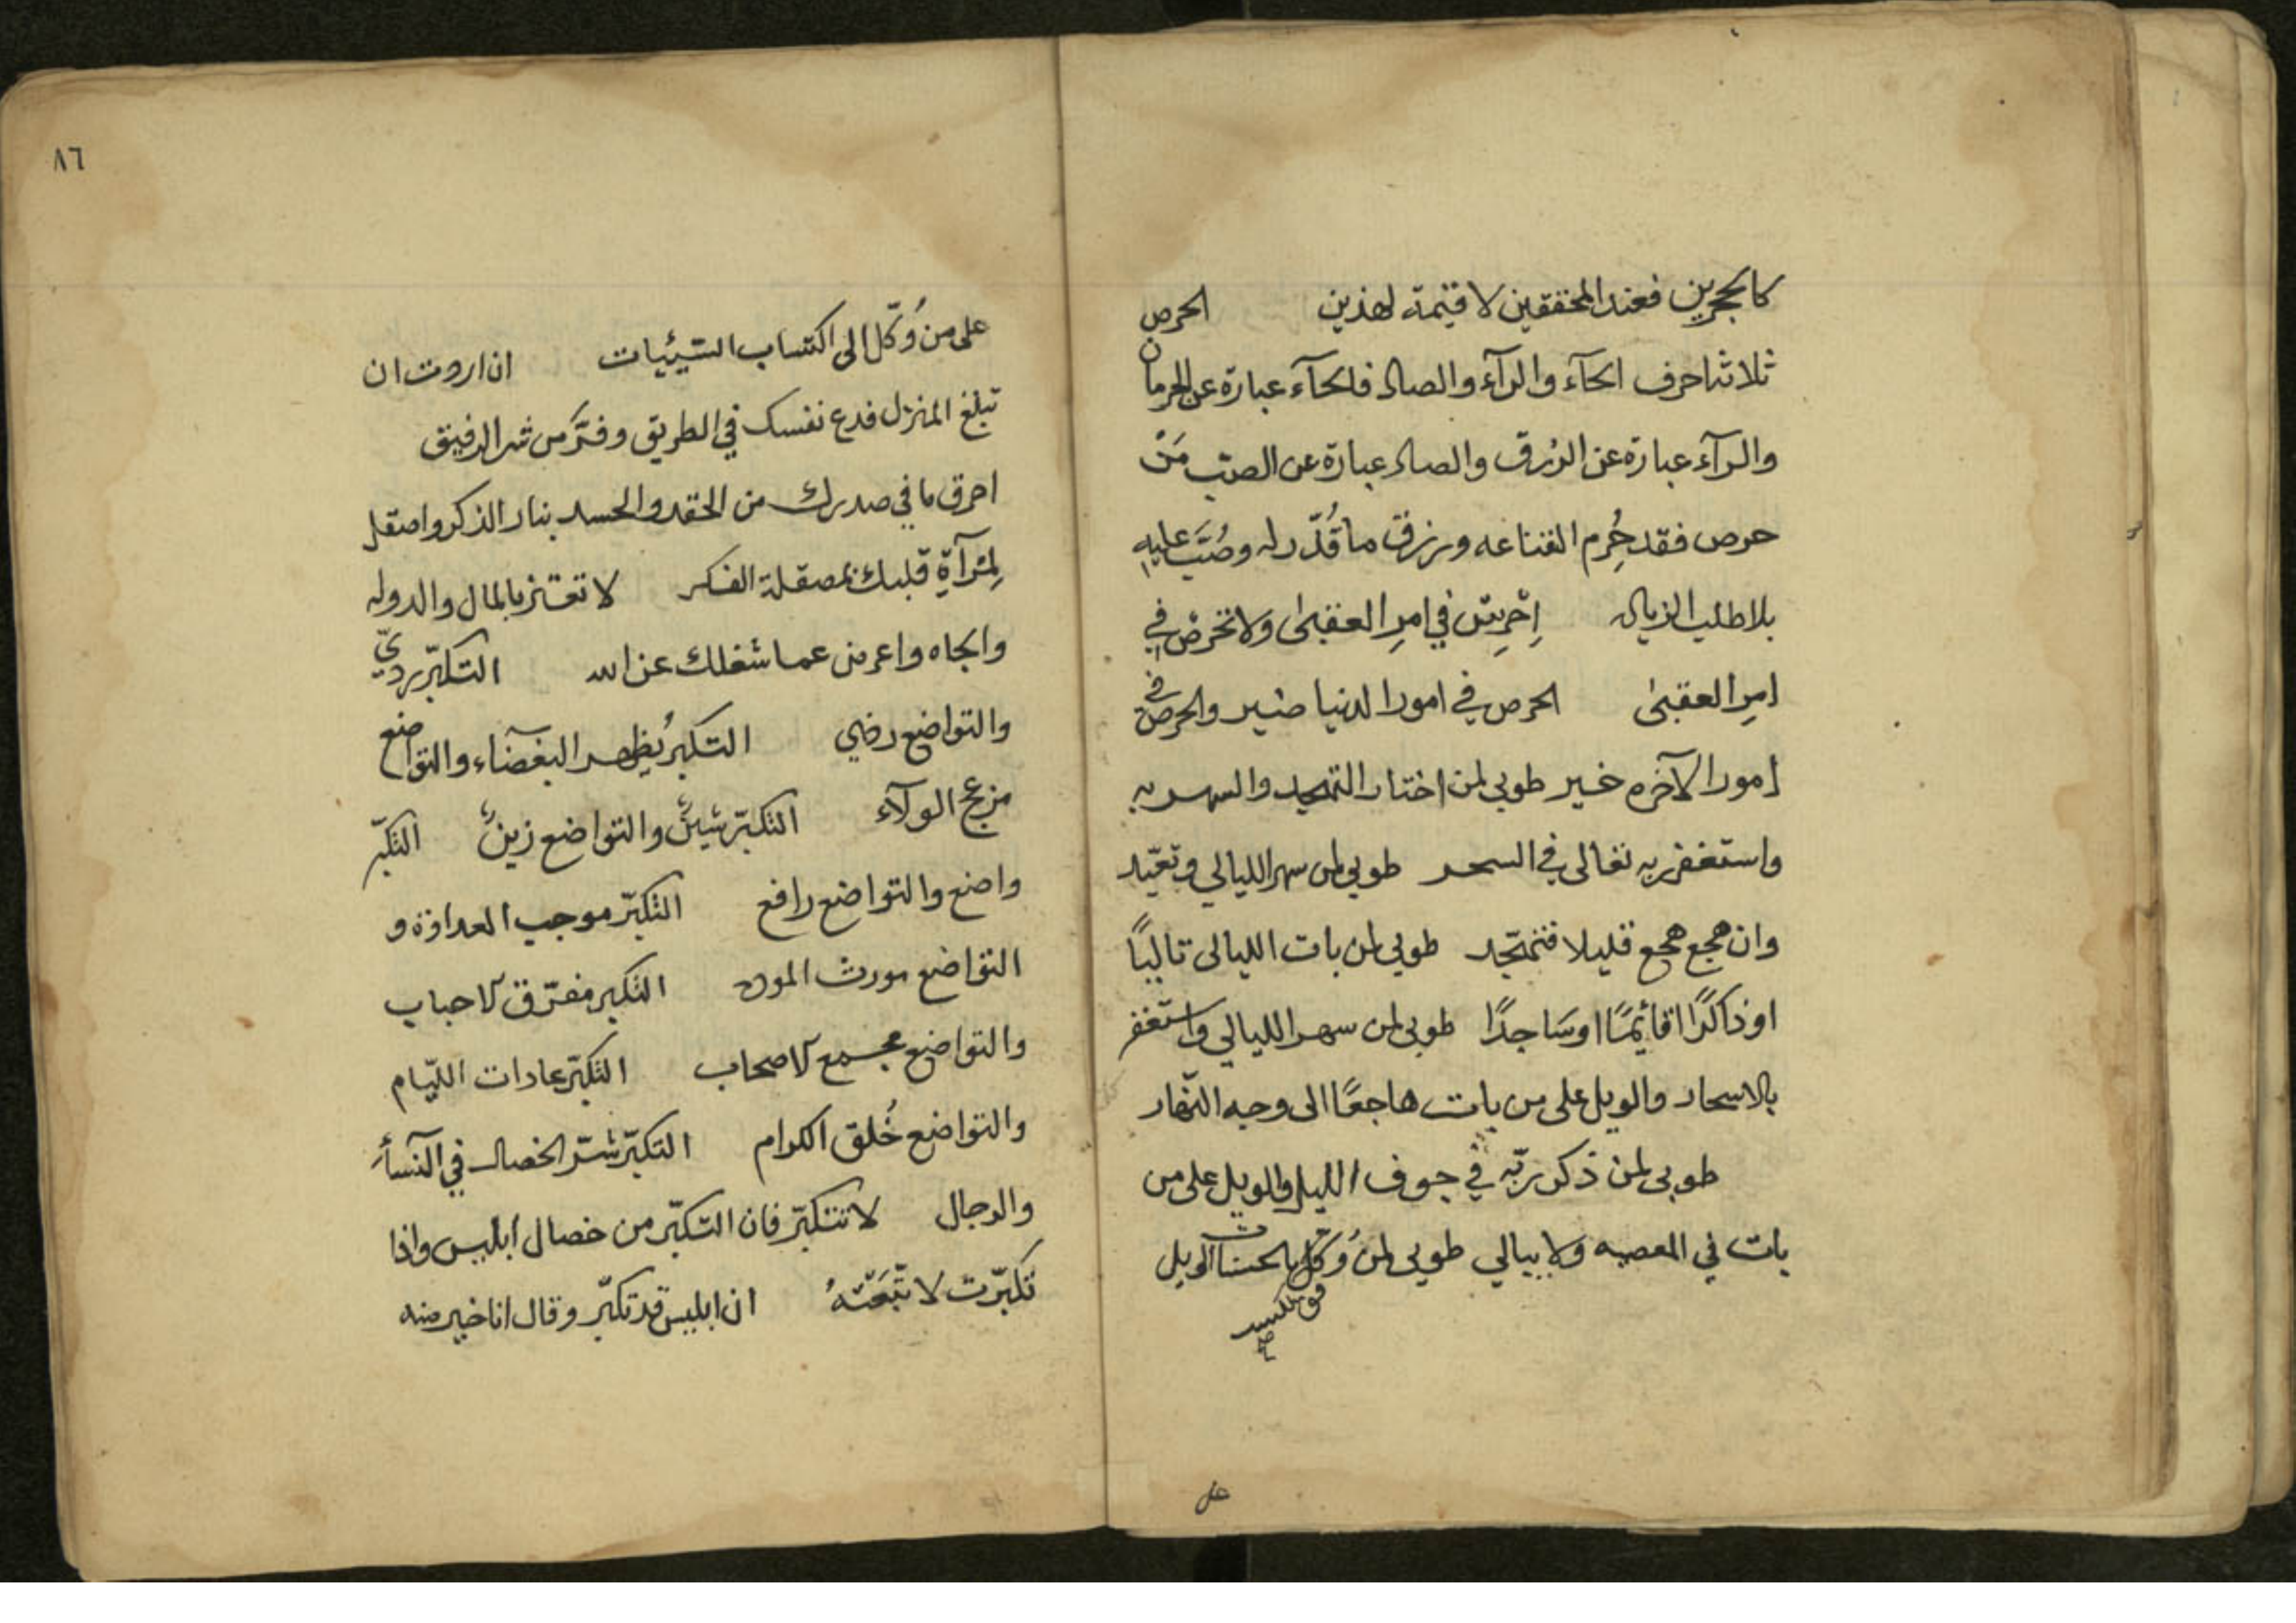 كالحجرين فعند المحققين لا قيمة لهذين الحرص
ثلاثة احرف الحآء والرآء والصاد فالحآء عبارة عن الحرمان
والرآء عبارة عن الرزق والصاد عبارة عن الصبّ مَنْ
حرص فقد حُرِم القناعه ورزق ما قُدّر له وصُبَّ عليه
بلا طلب الزياده اِحْرِصْ في امرِ العقبىٰ ولا تحرصْ في
امرِ العقبىٰ الحرص في امور الدنيا ضير والحرص في
امور الآخره خير طوبى لمن اختار التهجد والسهر به
واستغفر ربه تعالى في السحر طوبى لمن سهر الليالي وتعبّد
وان هجع هجع قليلا فتهجّد طوبى لمن بات الليالى تاليًا
او ذاكرًا قائِمًا او سَاجدًا طوبى لمن سهر الليالي واستغفر
بالاسحار والويل على من بات هاجعًا الى وجه النّهار
طوبى لمن ذكر ربّه في جوف الليل والويل على من
بات في المعصيه ولا يبالي طوبى لمن وُكّل بالحسنات الويل
على
٨٦
على من وُكّل الى اكتساب السّيئيات ان اردت ان
تبلغ المنزل فدع نفسك في الطريق وفرَّ من شر الرفيق
احرق ما في صدرك من الحقد والحسد بنار الذكر واصقل
لِمْرآةِ قلبك بمصقلة الفكر لا تغتر بالمال والدوله
والجاه واعرض عما شغلك عن الله التكبّر رديّ
والتواضع رضي التكبرُ يُظهر البغضآء والتواضع
مزعج الولآء التكبّر شينٌ والتواضع زينٌ التكبّر
واضع والتواضع رافع التكبّر موجب العداوة و
التواضع مورث الموده التكبر مفرّق الاحباب
والتواضع مجمع الاصحاب التكبّر عادات اللّيام
والتواضع خُلق الكرام التكبّر شرّ الخصال في النسآء
والرجال لا تتكبّر فان التكبّر من خصال ابليس واذا
تكبّرت لا تّبَعْتَهُ ان ابليس قد تكبّر وقال انا خير منه